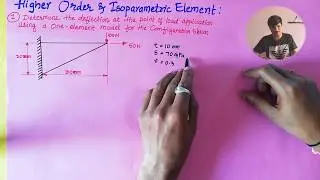 Higher Order & Isoparametric Element:
1) Determine the deflection at the point of load application
using a One-element model for the Configuration Shown
100N
50N
20mm
30mm
t = 10 mm
E = 70 GPa
ν = 0.3